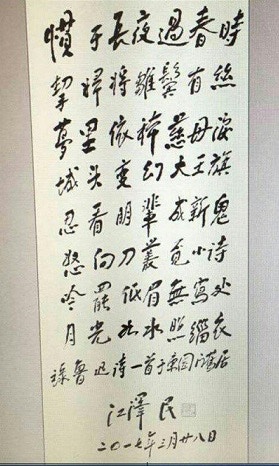 慣于長夜過春時
挈婦將雛鬢有絲
夢里依稀慈母淚
城头变幻大王旗
忍看朋輩成新鬼
怒向刀叢覓小诗
吟罷低眉無寫处
月光如水照緇衣
錄魯迅诗一首于東園寓居
江澤民
二〇一七年三月廿八日